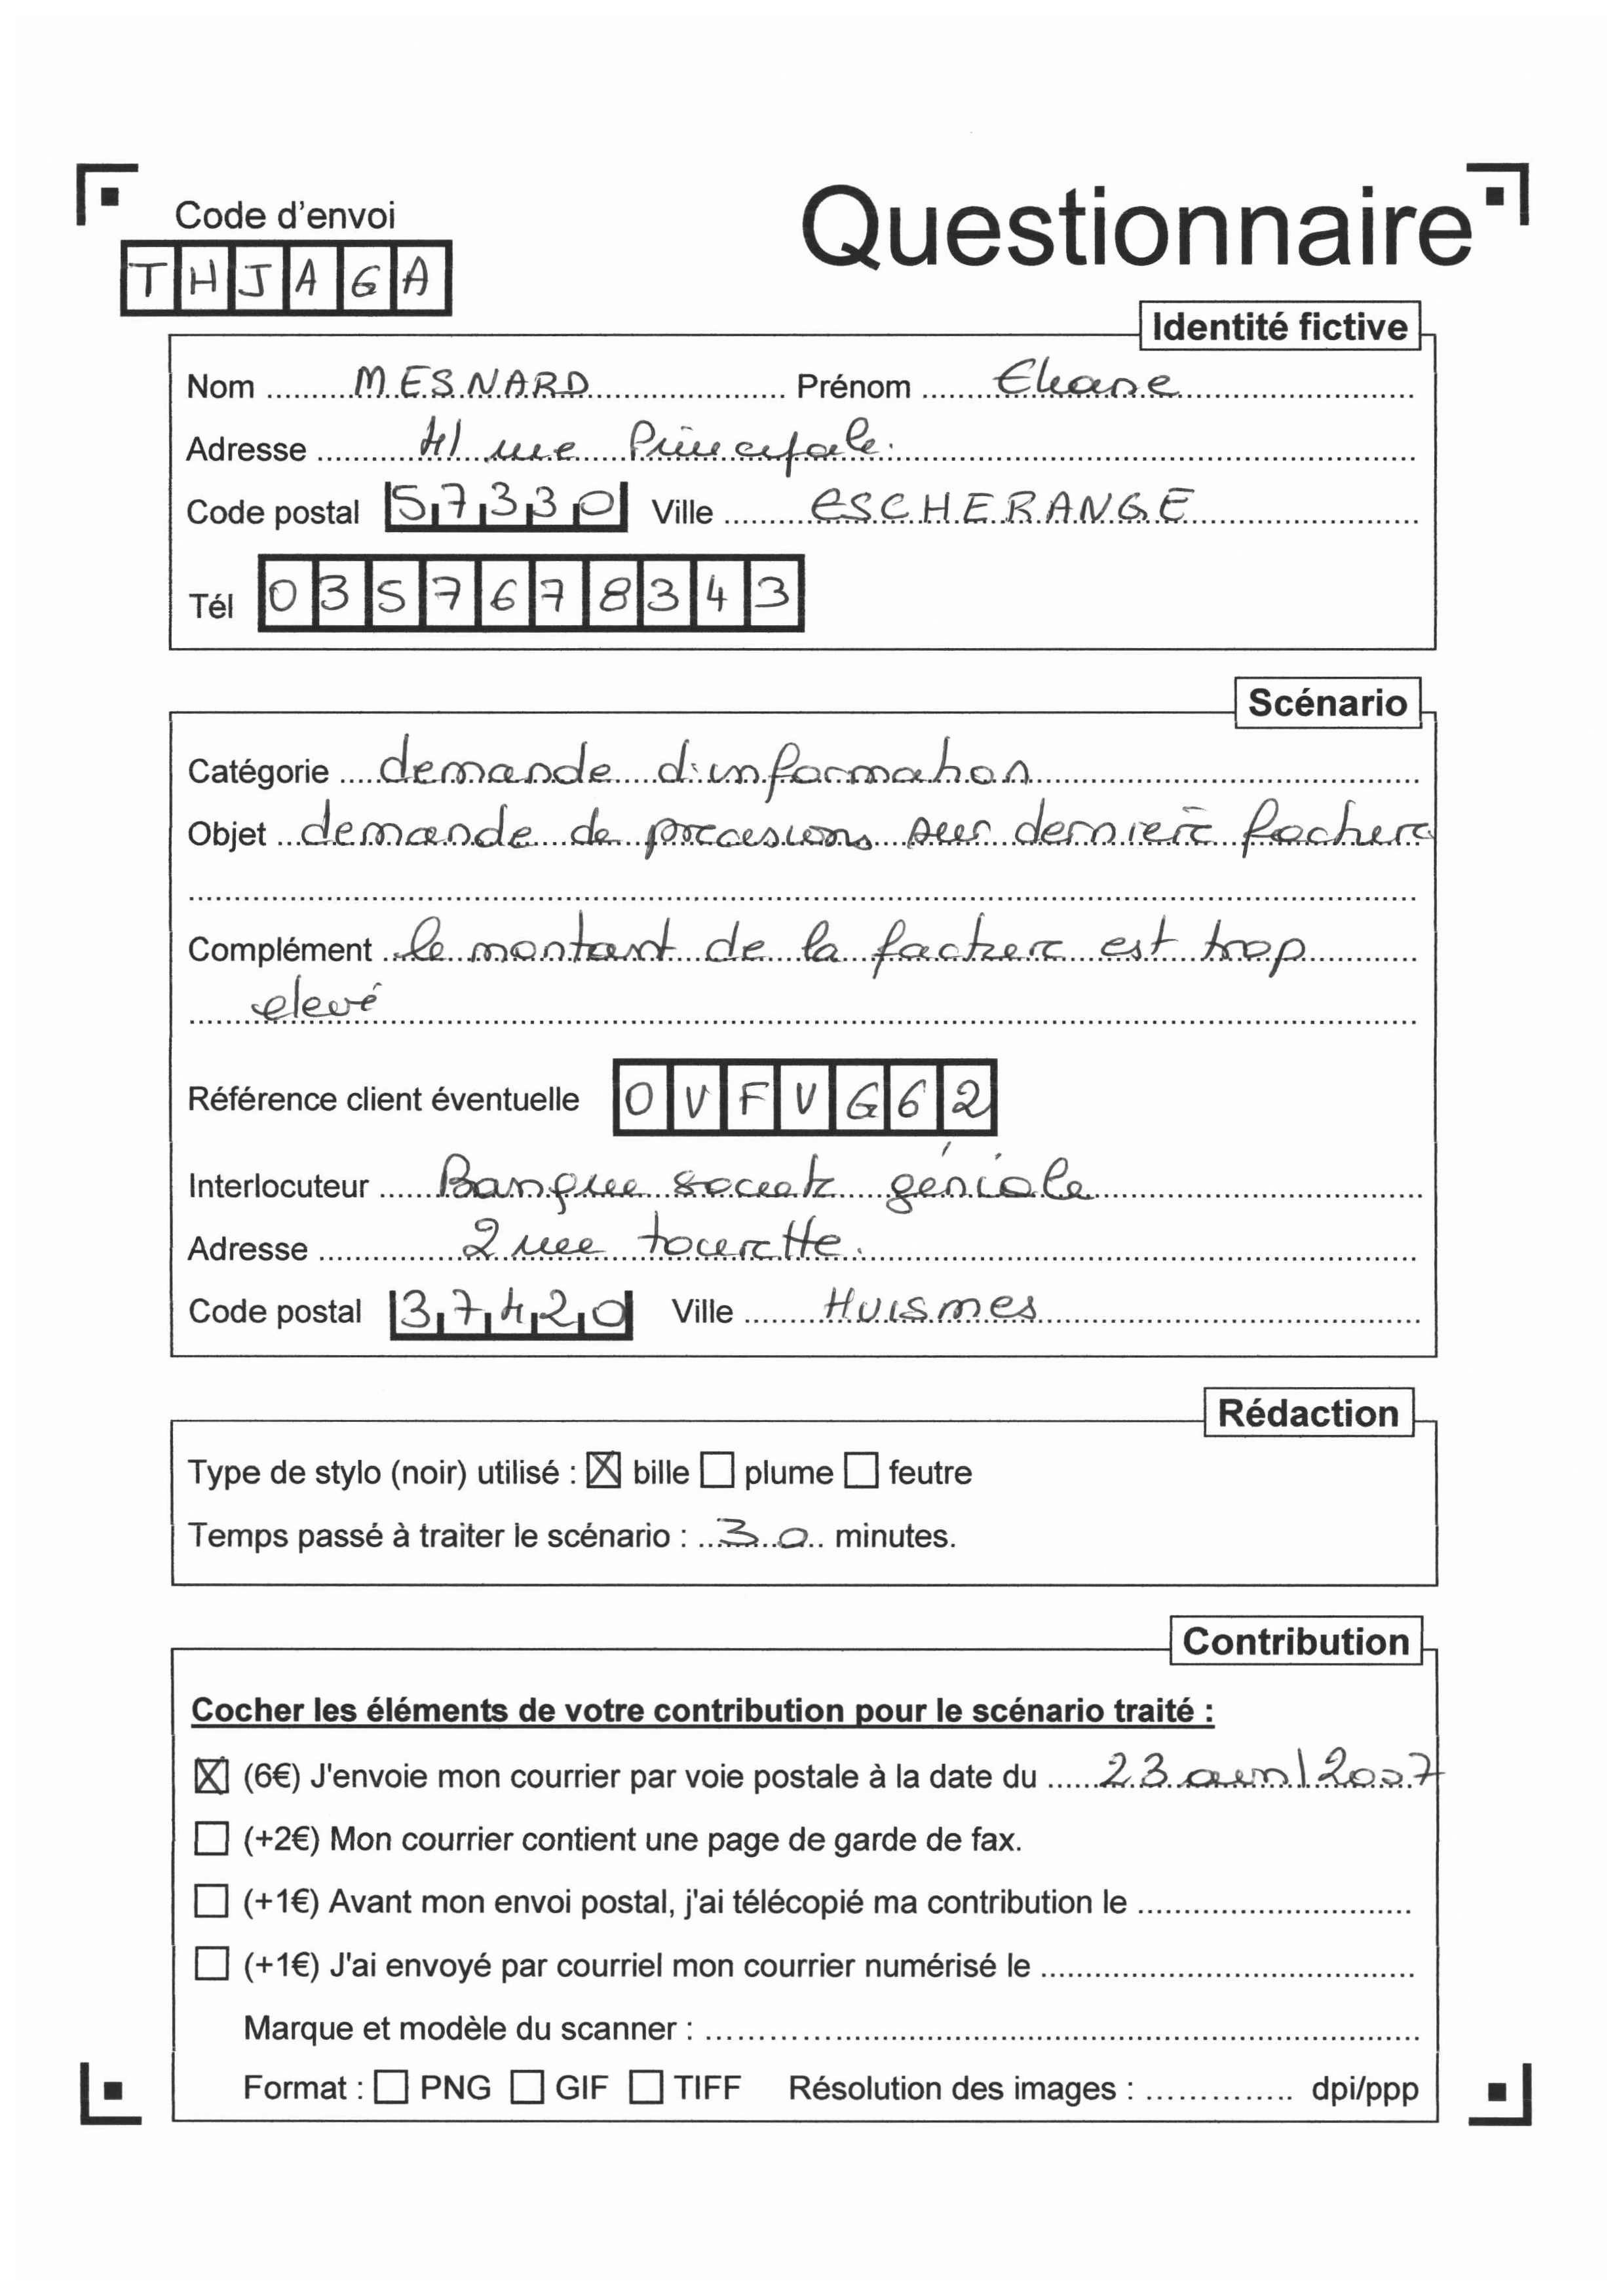 Code d'envoi
Questionnaire
THJAGA
Identité fictive
Nom MESNARD Prénom Eliane
Adresse 41 rue Principale.
Code postal 57330 Ville ESCHERANGE
Tél 0357678343
Scénario
Catégorie demande d'information
Objet demande de precisions sur derniere facture
Complément le montant de la facture est trop
elevé
Référence client éventuelle OVFVG62
Interlocuteur Banque societe géniale
Adresse 2 rue tourette.
Code postal 37420 Ville Huismes
Rédaction
Type de stylo (noir) utilisé : ☒ bille ☐ plume ☐ feutre
Temps passé à traiter le scénario : 30 minutes.
Contribution
Cocher les éléments de votre contribution pour le scénario traité :
☒ (6€) J'envoie mon courrier par voie postale à la date du 23 avril 2007
☐ (+2€) Mon courrier contient une page de garde de fax.
☐ (+1€) Avant mon envoi postal, j'ai télécopié ma contribution le
☐ (+1€) J'ai envoyé par courriel mon courrier numérisé le
Marque et modèle du scanner :
Format : ☐ PNG ☐ GIF ☐ TIFF Résolution des images : dpi/ppp